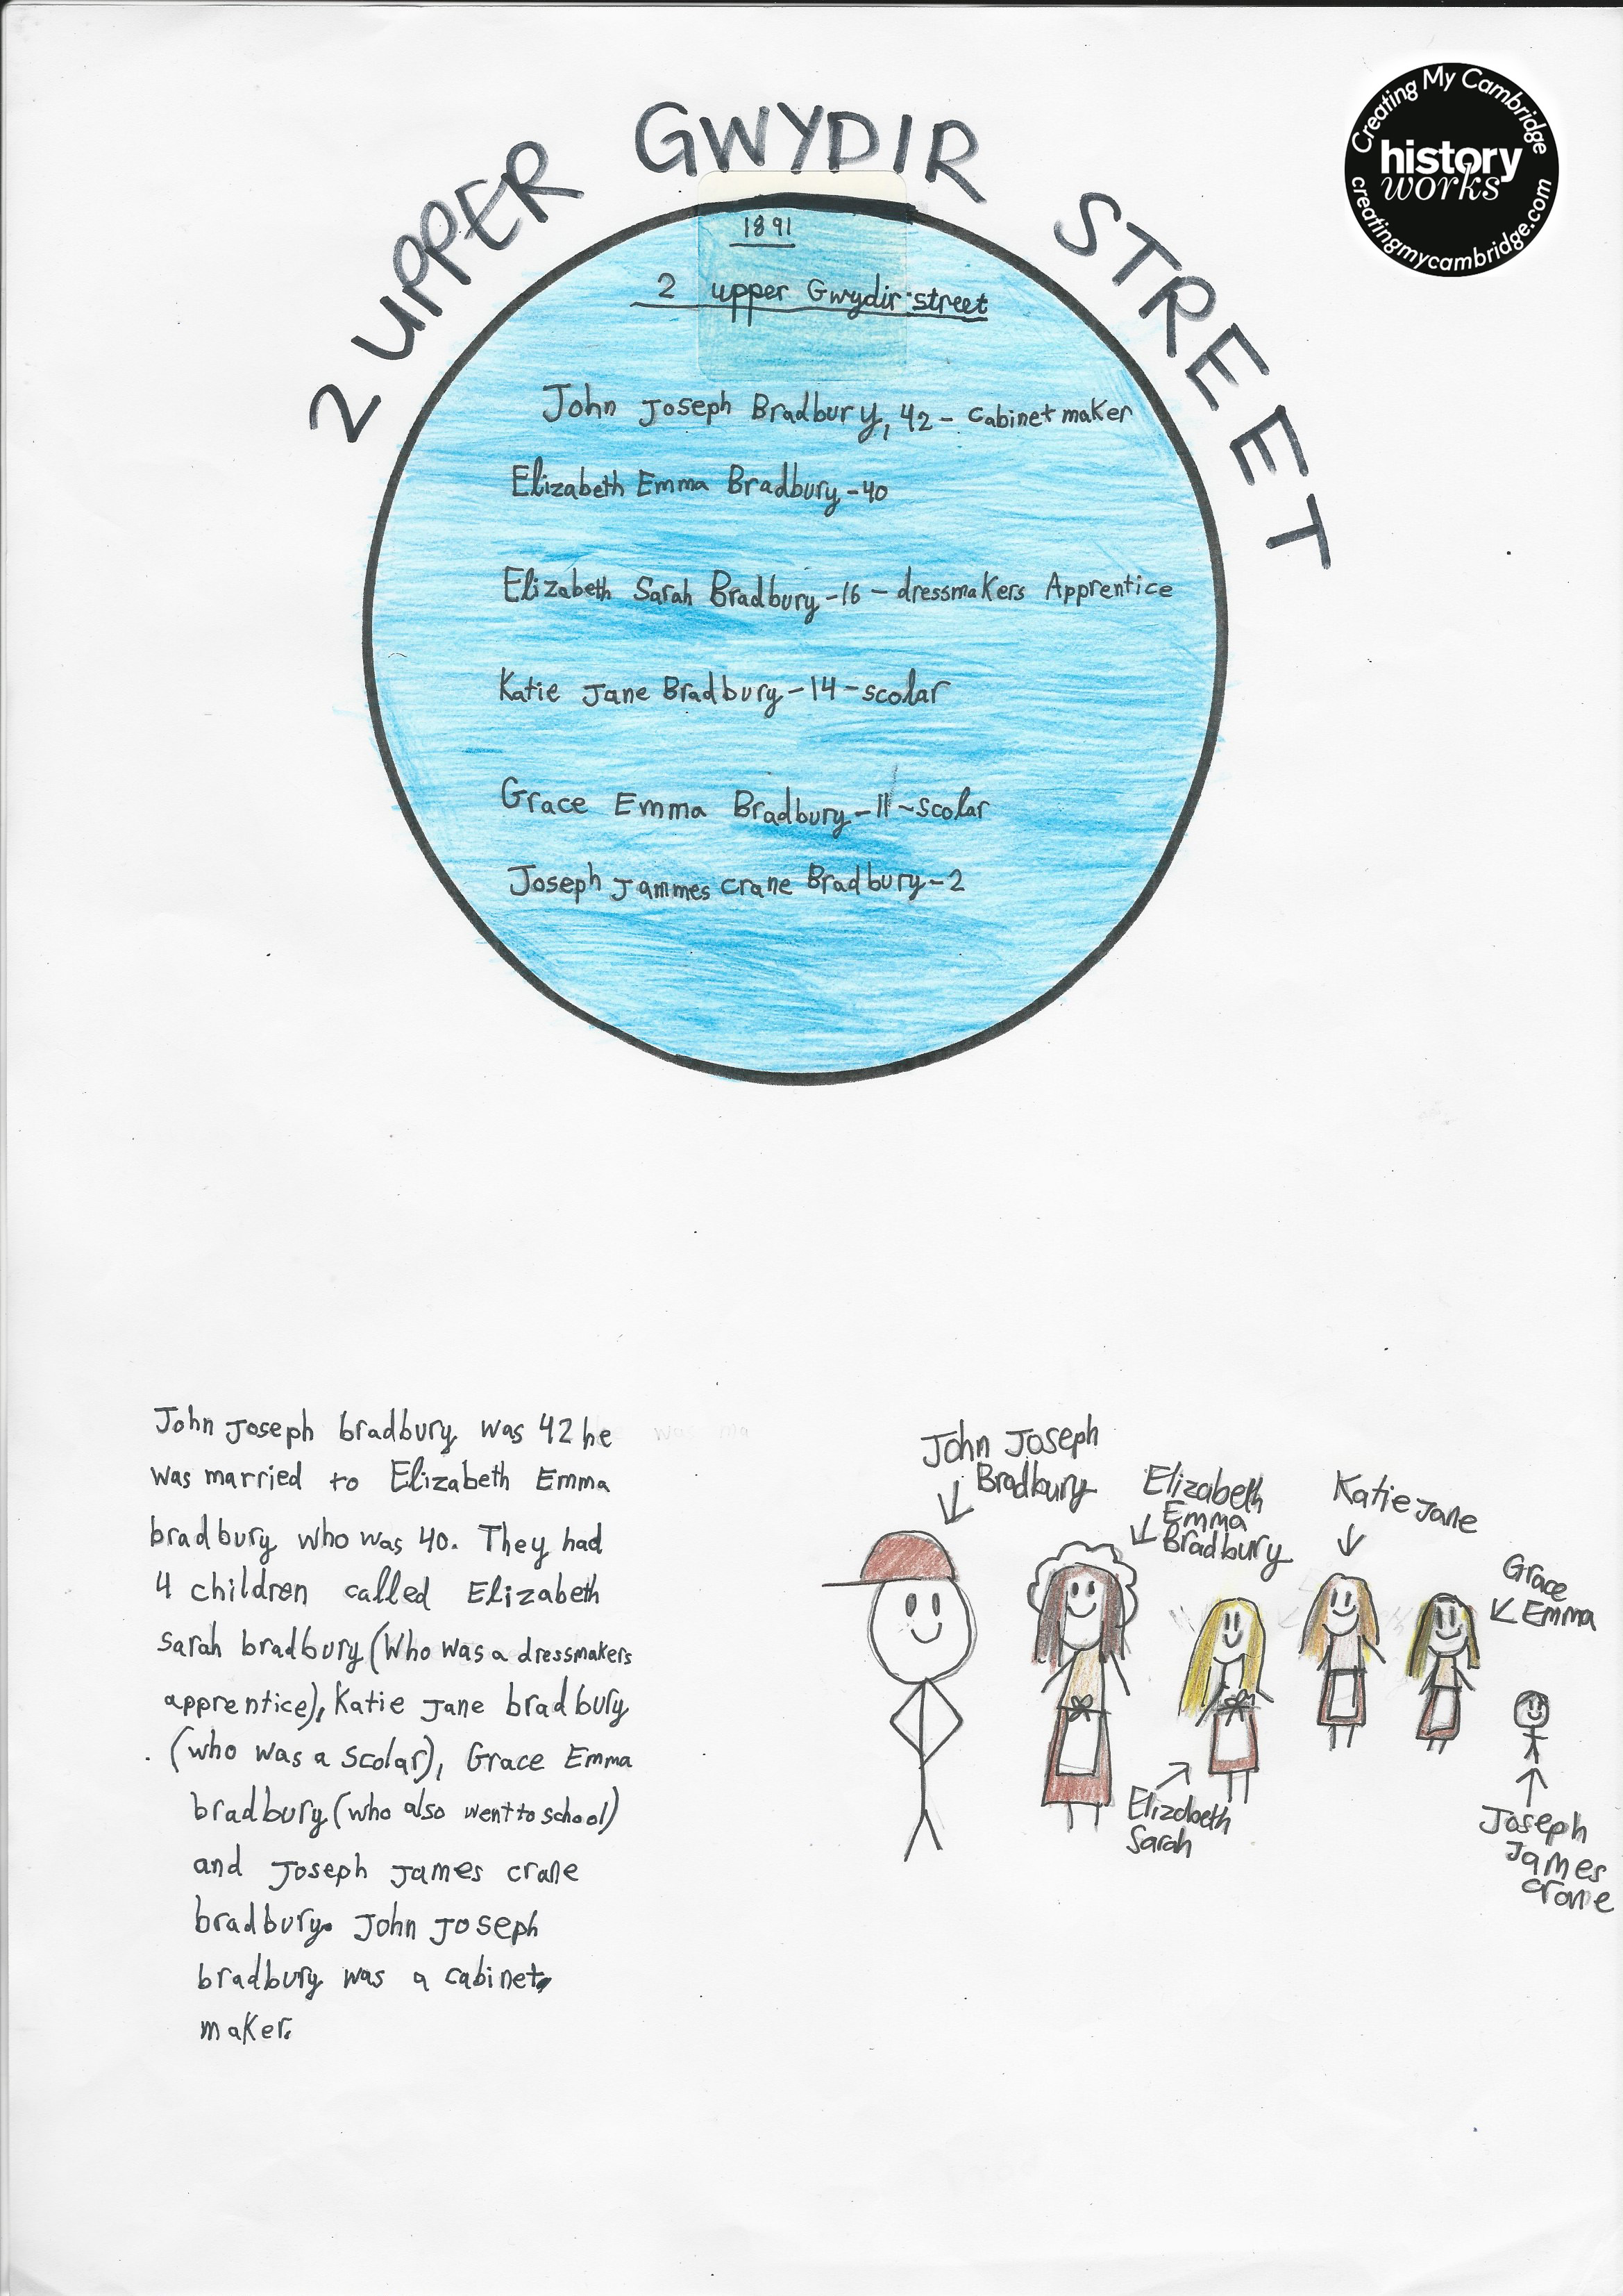 2 UPPER GWYDIR STREET
Creating My Cambridge
history
works
creatingmycambridge.com
1891
2 upper Gwydir street
John Joseph Bradbury, 42 - cabinet maker
Elizabeth Emma Bradbury - 40
Elizabeth Sarah Bradbury - 16 - dressmakers Apprentice
Katie Jane Bradbury - 14 - scolar
Grace Emma Bradbury - 11 - scolar
Joseph Jammes crane Bradbury - 2
John Joseph bradbury was 42 he
was married to Elizabeth Emma
bradbury who was 40. They had
4 children called Elizabeth
sarah bradbury (Who was a dressmakers
apprentice), Katie Jane bradbury
(who was a scolar), Grace Emma
bradbury (who also went to school)
and Joseph James crane
bradbury. John Joseph
bradbury was a cabinet
maker.
John Joseph
Bradbury
Elizabeth
Emma
Bradbury
Katie Jane
Grace
Emma
Elizabeth
Sarah
Joseph
James
crane